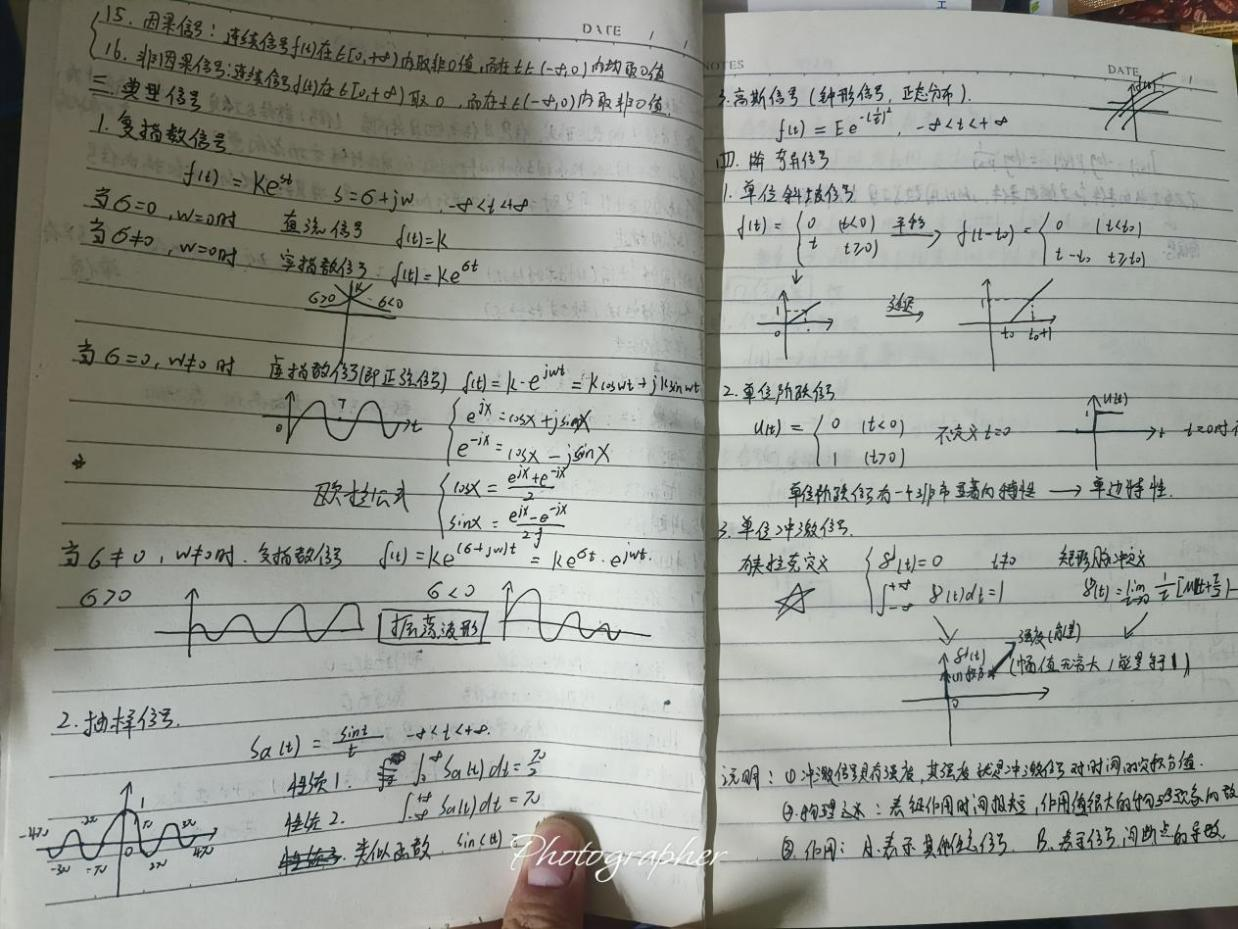 DATE / /
15. 因果信号：连续信号f(t)在t∈[0,+∞)内取非0值,而在t∈(-∞,0)内均取0值
16. 非因果信号:连续信号f(t)在t∈[0,+∞)取0,而在t∈(-∞,0)内取非0值.
三.典型信号
1.复指数信号
f(t)=Ke^{st} s=σ+jω, -∞<t<+∞
当σ=0,ω=0时 直流信号 f(t)=K
当σ≠0,ω=0时 实指数信号 f(t)=Ke^{σt}
σ>0 K σ<0
当σ=0,ω≠0时 虚指数信号(即正弦信号) f(t)=K·e^{jωt}=Kcosωt+jKsinωt
0 T t
e^{jx}=cosx+jsinx
e^{-jx}=cosx-jsinx
欧拉公式
cosx=(e^{jx}+e^{-jx})/2
sinx=(e^{jx}-e^{-jx})/2j
当σ≠0,ω≠0时.复指数信号 f(t)=Ke^{(σ+jω)t}=Ke^{σt}·e^{jωt}.
σ>0 振荡波形 σ<0
2.抽样信号.
Sa(t)=sint/t -∞<t<+∞.
性质1. ∫_0^∞ Sa(t)dt=π/2
性质2. ∫_{-∞}^{+∞} Sa(t)dt=π
类似函数 sinc(t)=
1
-4π -3π -π 0 π 2π 3π 4π
Photographer
NOTES DATE /
3.高斯信号(钟形信号,正态分布).
f(t)=Ee^{-(t/τ)²}, -∞<t<+∞
四. 奇异信号
1.单位斜坡信号
f(t)={0 (t<0) t t≥0) 平移→ f(t-t₀)={0 (t<t₀) t-t₀ t≥t₀)
1 0 延迟 1 t₀ t₀+1
2.单位阶跃信号
u(t)={0 (t<0) 1 (t>0) 不定义t=0 u(t) t t=0时
单位阶跃信号有一个非常显著的特性→单边特性.
3.单位冲激信号.
狄拉克定义 {δ(t)=0 t≠0 矩形脉冲定义
∫_{-∞}^{+∞} δ(t)dt=1 δ(t)=lim_{τ→0} 1/τ[u(t+τ/2)-
δ(t) (1) 强度(能量)
(幅值无穷大,能量等于1)
0
说明：①冲激信号具有强度,其强度就是冲激信号对时间的定积分值.
②物理意义：表征作用时间极短,作用值很大的物理现象的数
③作用：A.表示其他任意信号. B.表示信号间断点的导数.